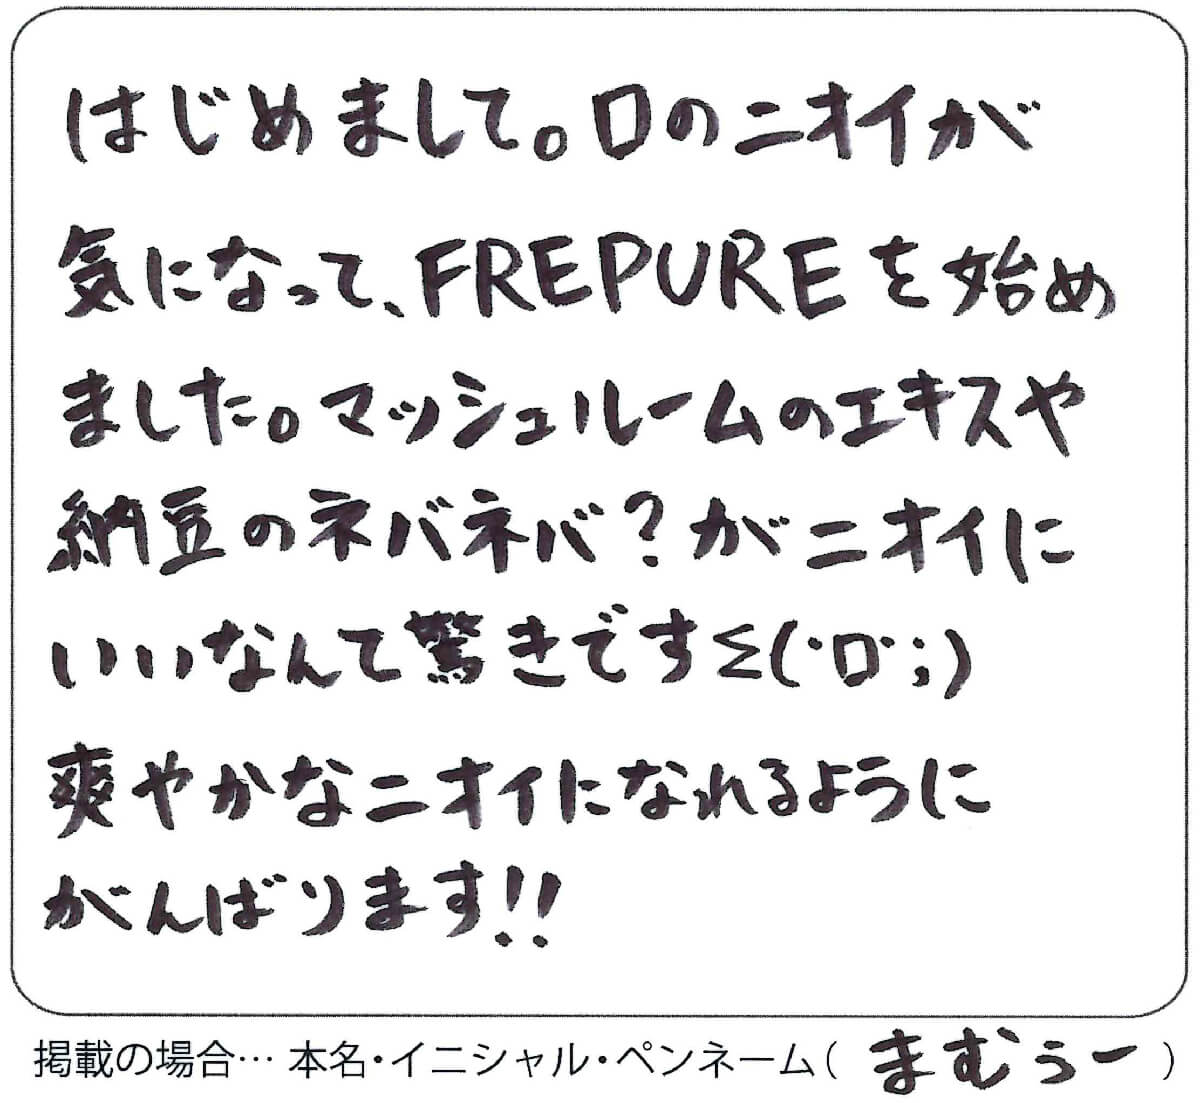 はじめまして。口のニオイが
気になって、FREPUREを始め
ました。マッシュルームのエキスや
納豆のネバネバ?がニオイに
いいなんて驚きですΣ(･ロ･;)
爽やかなニオイになれるように
がんばります!!
掲載の場合… 本名・イニシャル・ペンネーム( まむぅー )